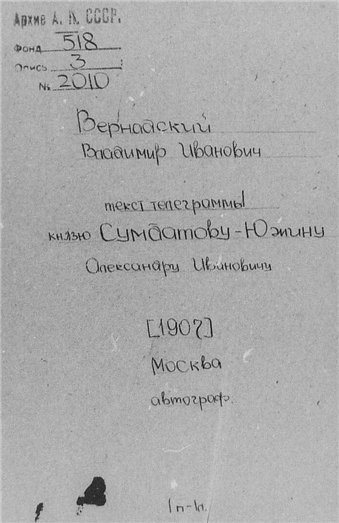 Архив А. Н. СССР.
Фонд 518
Опись 3
№ 2010
Вернадский
Владимир Иванович
текст телеграммы
князю Сумбатову-Южину
Александру Ивановичу
[1907]
Москва
автограф.
1п-1л.